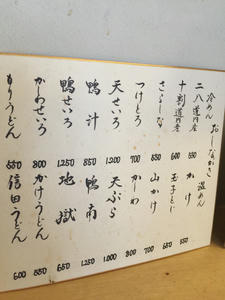 おしながき
冷めん 温めん
二八道内産 550 かけ 550
十割道内産 600 玉子とじ 650
さらしな 700 山かけ 700
つけとろ 700 かしわ 800
天せいろ 1,200 天ぷら 1,000
鴨汁 850 鴨南 1,250
鴨せいろ 1,250 地獄 650
かしわせいろ 800 かけうどん 550
もりうどん 550 信田うどん 600